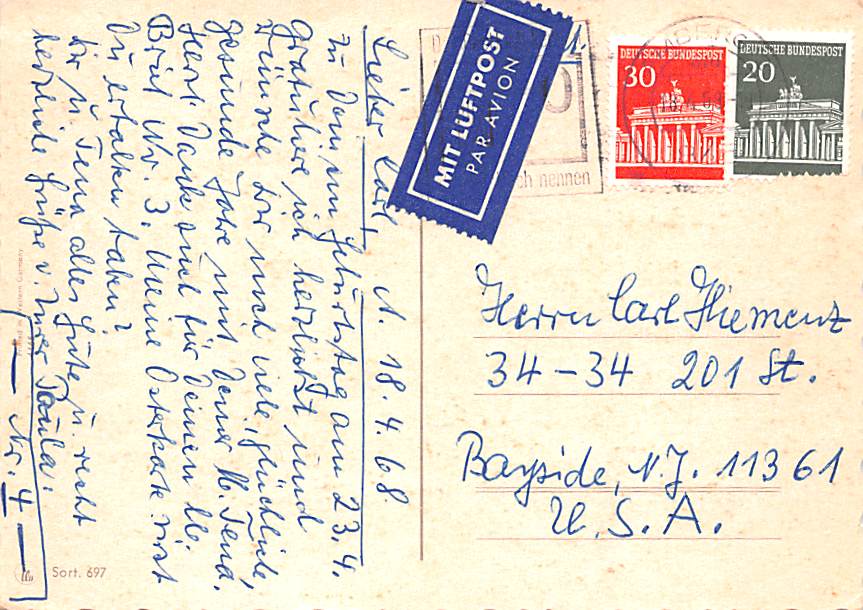 Lieber Carl! N. 18.4.68
zu Deinem Geburtstag am 23.4.
gratuliere ich herzlichst und
wünsche Dir noch viele, glückliche,
gesunde Jahre mit Deiner lb. Tena.
Herzl. Dank auch für Deinen lb.
Brief Nr. 3. Meine Osterkarte wirst
Du erhalten haben?
Dir u. Tena alles Gute u. recht
herzliche Grüße v. Eurer Paula.
— Nr. 4 —
Sort. 697
MIT LUFTPOST
PAR AVION
nennen
DEUTSCHE BUNDESPOST
30
DEUTSCHE BUNDESPOST
20
Herrn Carl Hiemenz
34-34 201 St.
Bayside, N.Y. 11361
U.S.A.